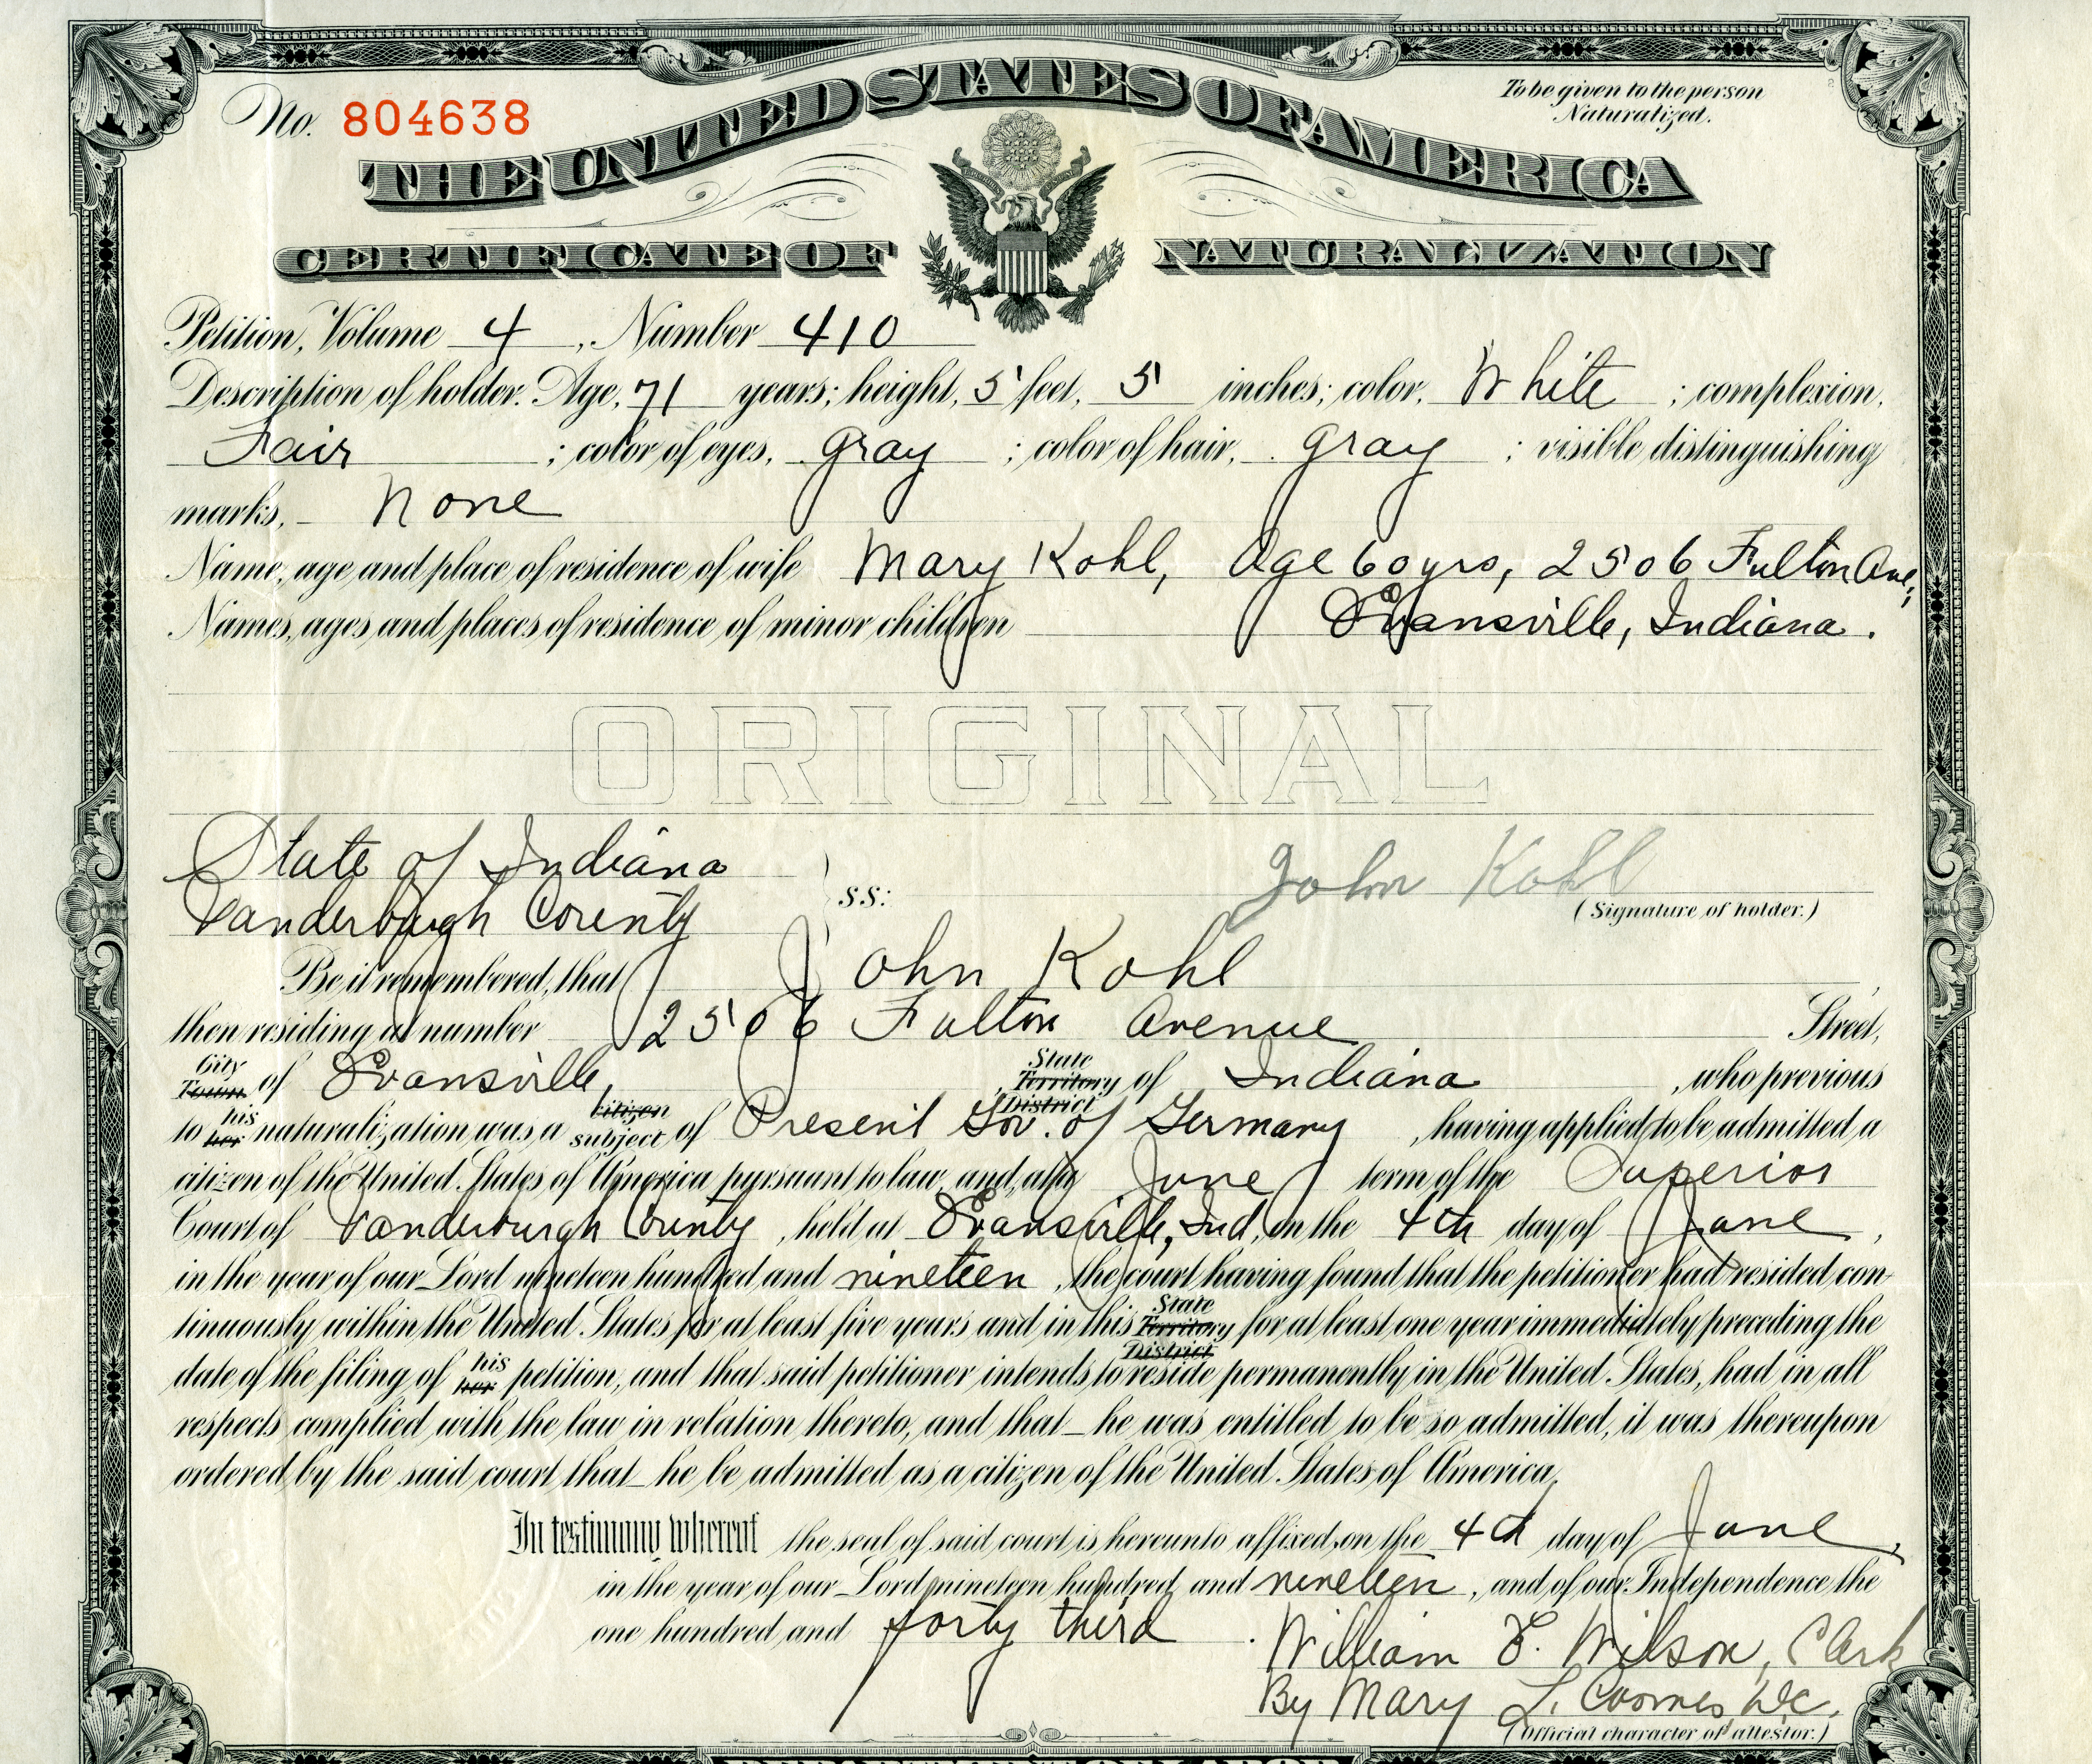 No. 804638
To be given to the person
Naturalized.
THE UNITED STATES OF AMERICA
CERTIFICATE OF NATURALIZATION
Petition, Volume 4, Number 410
Description of holder. Age, 71 years; height, 5 feet, 5 inches; color, White; complexion,
Fair; color of eyes, gray; color of hair, gray; visible distinguishing
marks, none
Name, age and place of residence of wife Mary Kohl, Age 60 yrs, 2506 Fulton Ave,
Names, ages and places of residence of minor children Evansville, Indiana.
ORIGINAL
State of Indiana
Vanderburgh County
SS:
John Kohl
(Signature of holder.)
Be it remembered, that John Kohl
then residing at number 2506 Fulton Avenue Street,
City Town of Evansville, State Territory District of Indiana, who previous
to his her naturalization was a citizen subject of Present Gov. of Germany, having applied to be admitted a
citizen of the United States of America pursuant to law, and, at a June term of the Superior
Court of Vanderburgh County, held at Evansville, Ind, on the 4th day of June,
in the year of our Lord nineteen hundred and nineteen, the court having found that the petitioner had resided con-
tinuously within the United States for at least five years and in this State Territory District for at least one year immediately preceding the
date of the filing of his her petition, and that said petitioner intends to reside permanently in the United States, had in all
respects complied with the law in relation thereto, and that he was entitled to be so admitted, it was thereupon
ordered by the said court that he be admitted as a citizen of the United States of America.
In testimony whereof the seal of said court is hereunto affixed, on the 4th day of June,
in the year of our Lord nineteen hundred and nineteen, and of our Independence the
one hundred and forty third.
William E. Wilson, Clerk
By Mary L. Coomes, DC.
(Official character of attestor.)
DEPARTMENT OF LABOR